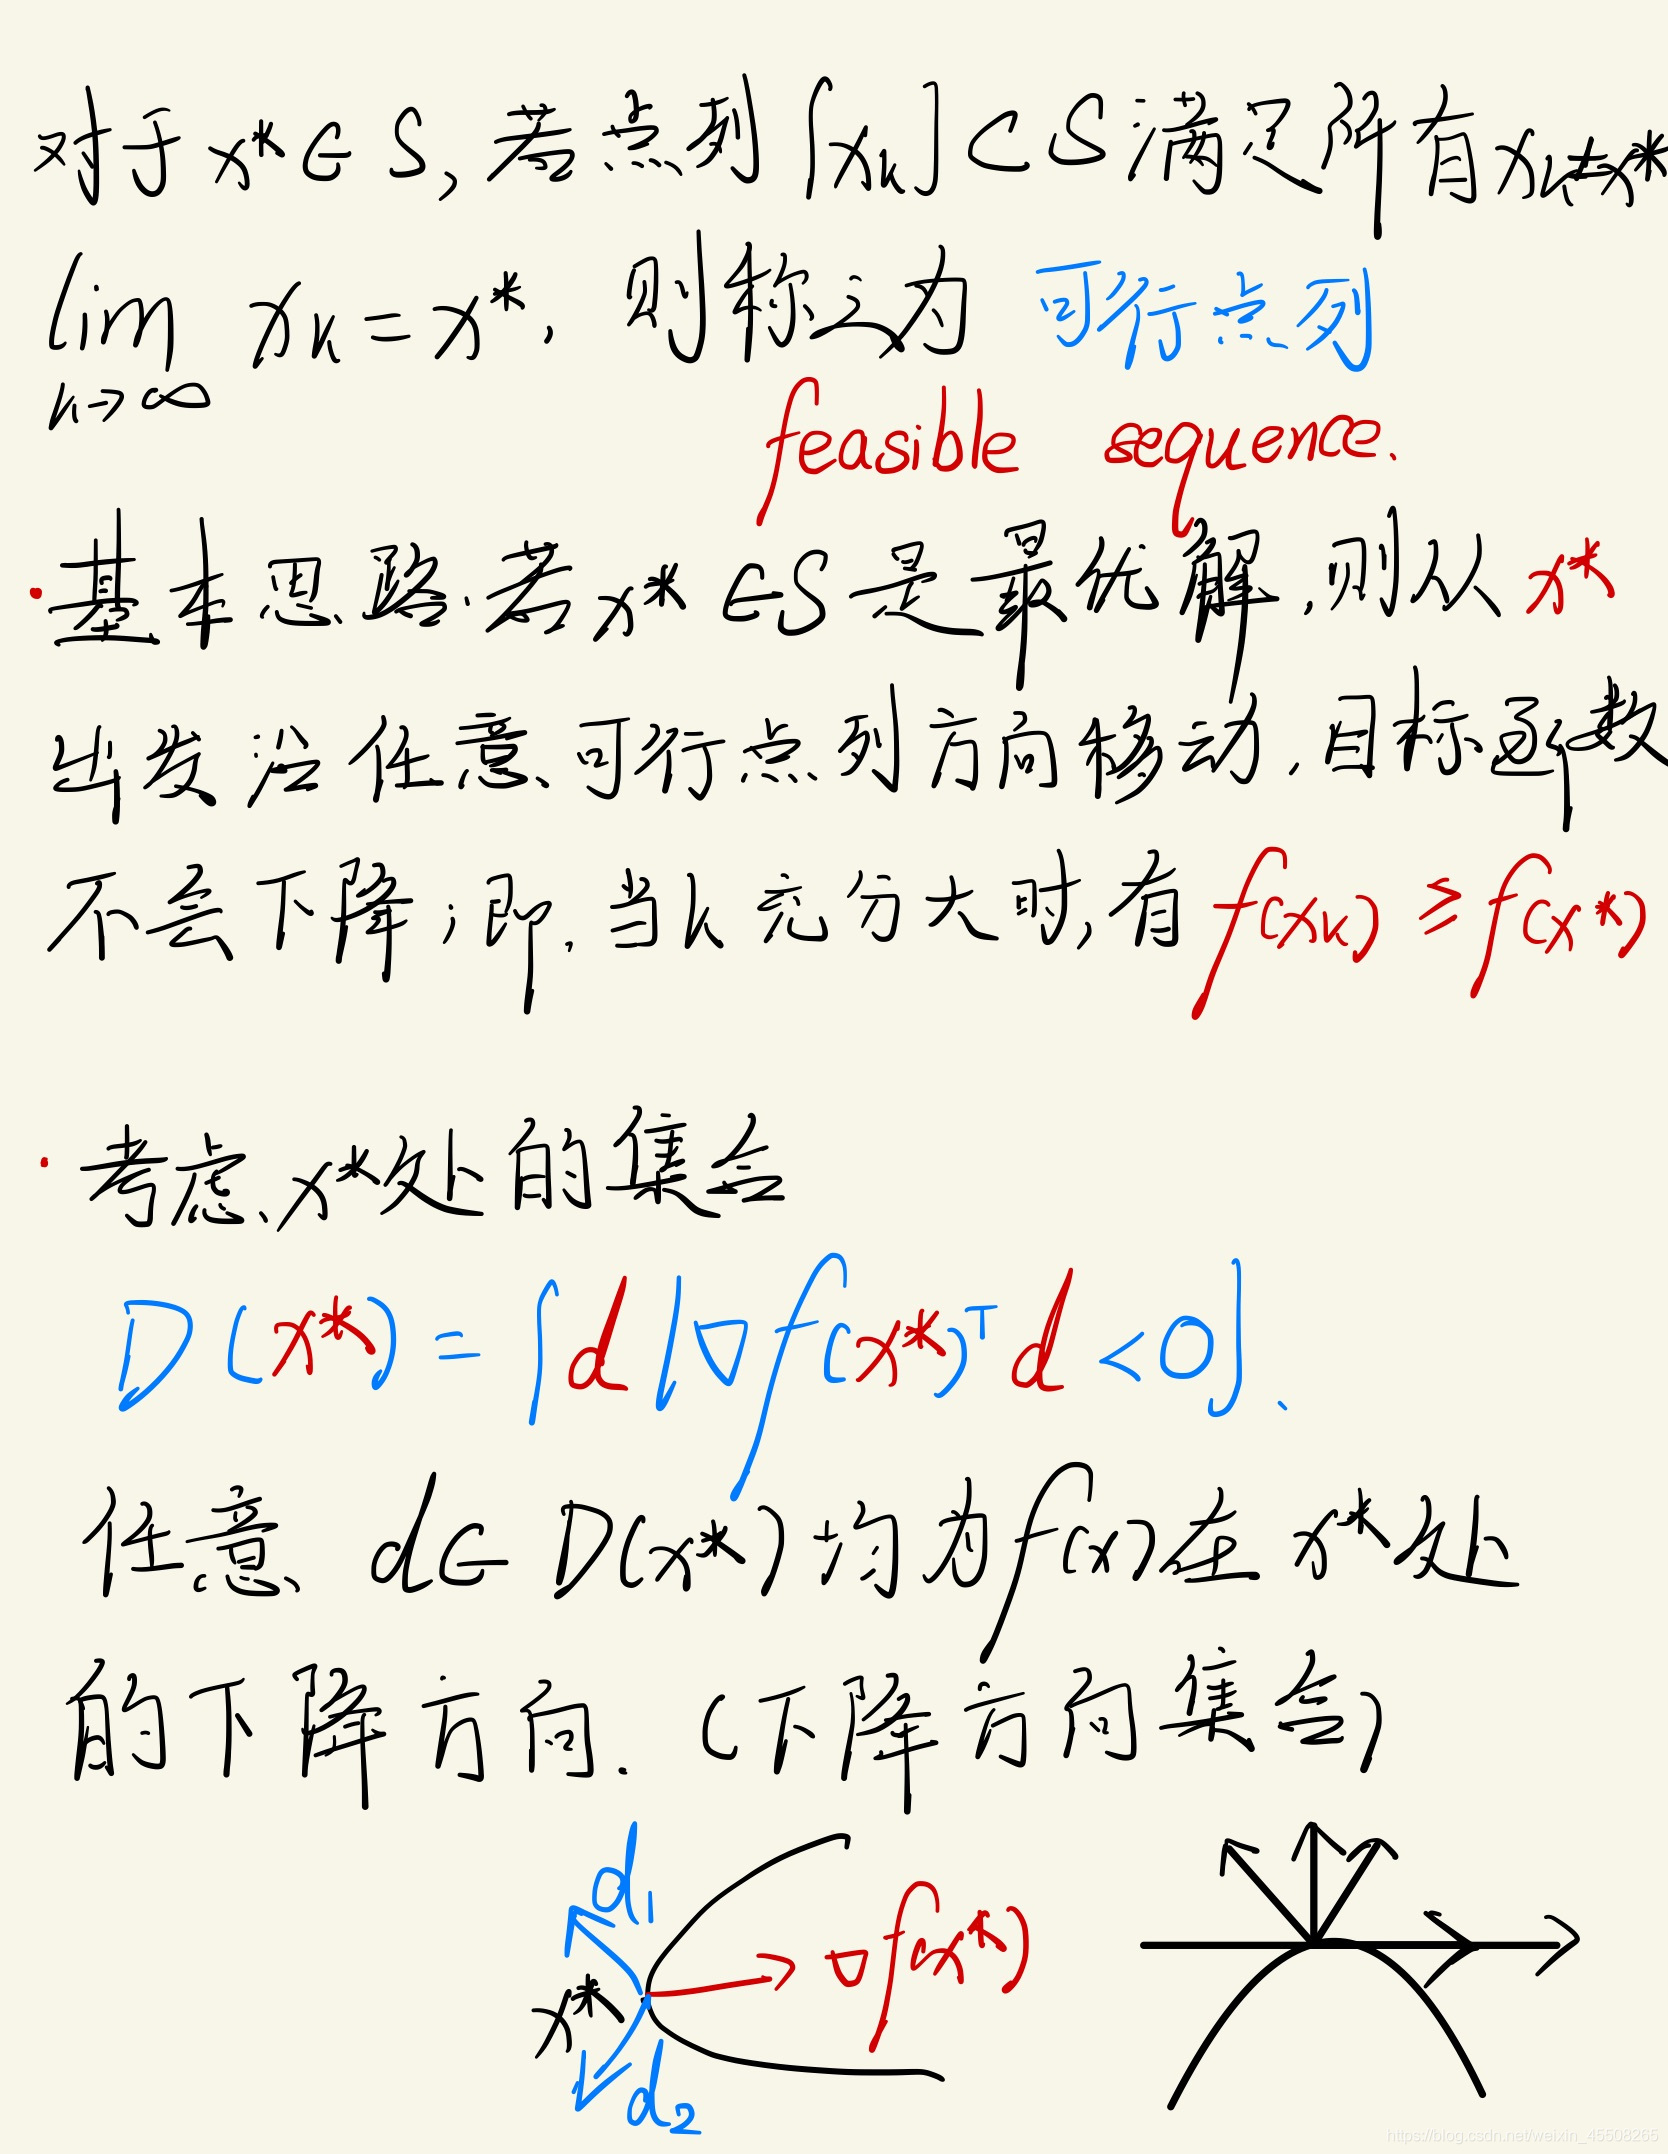 对于 x* ∈ S, 若点列 {x_k} ⊂ S 满足所有 x_k ≠ x*
lim x_k = x*, 则称之为 可行点列
k→∞
feasible sequence.
·基本思路.若 x* ∈ S 是最优解,则从 x*
出发沿任意可行点列方向移动,目标函数
不会下降;即,当k充分大时,有 f(x_k) ≥ f(x*)
·考虑x*处的集合
D(x*) = {d | ∇f(x*)ᵀ d < 0}.
任意 d ∈ D(x*) 均为 f(x) 在 x* 处
的下降方向.(下降方向集合)
d₁
∇f(x*)
x*
d₂
https://blog.csdn.net/weixin_45508265